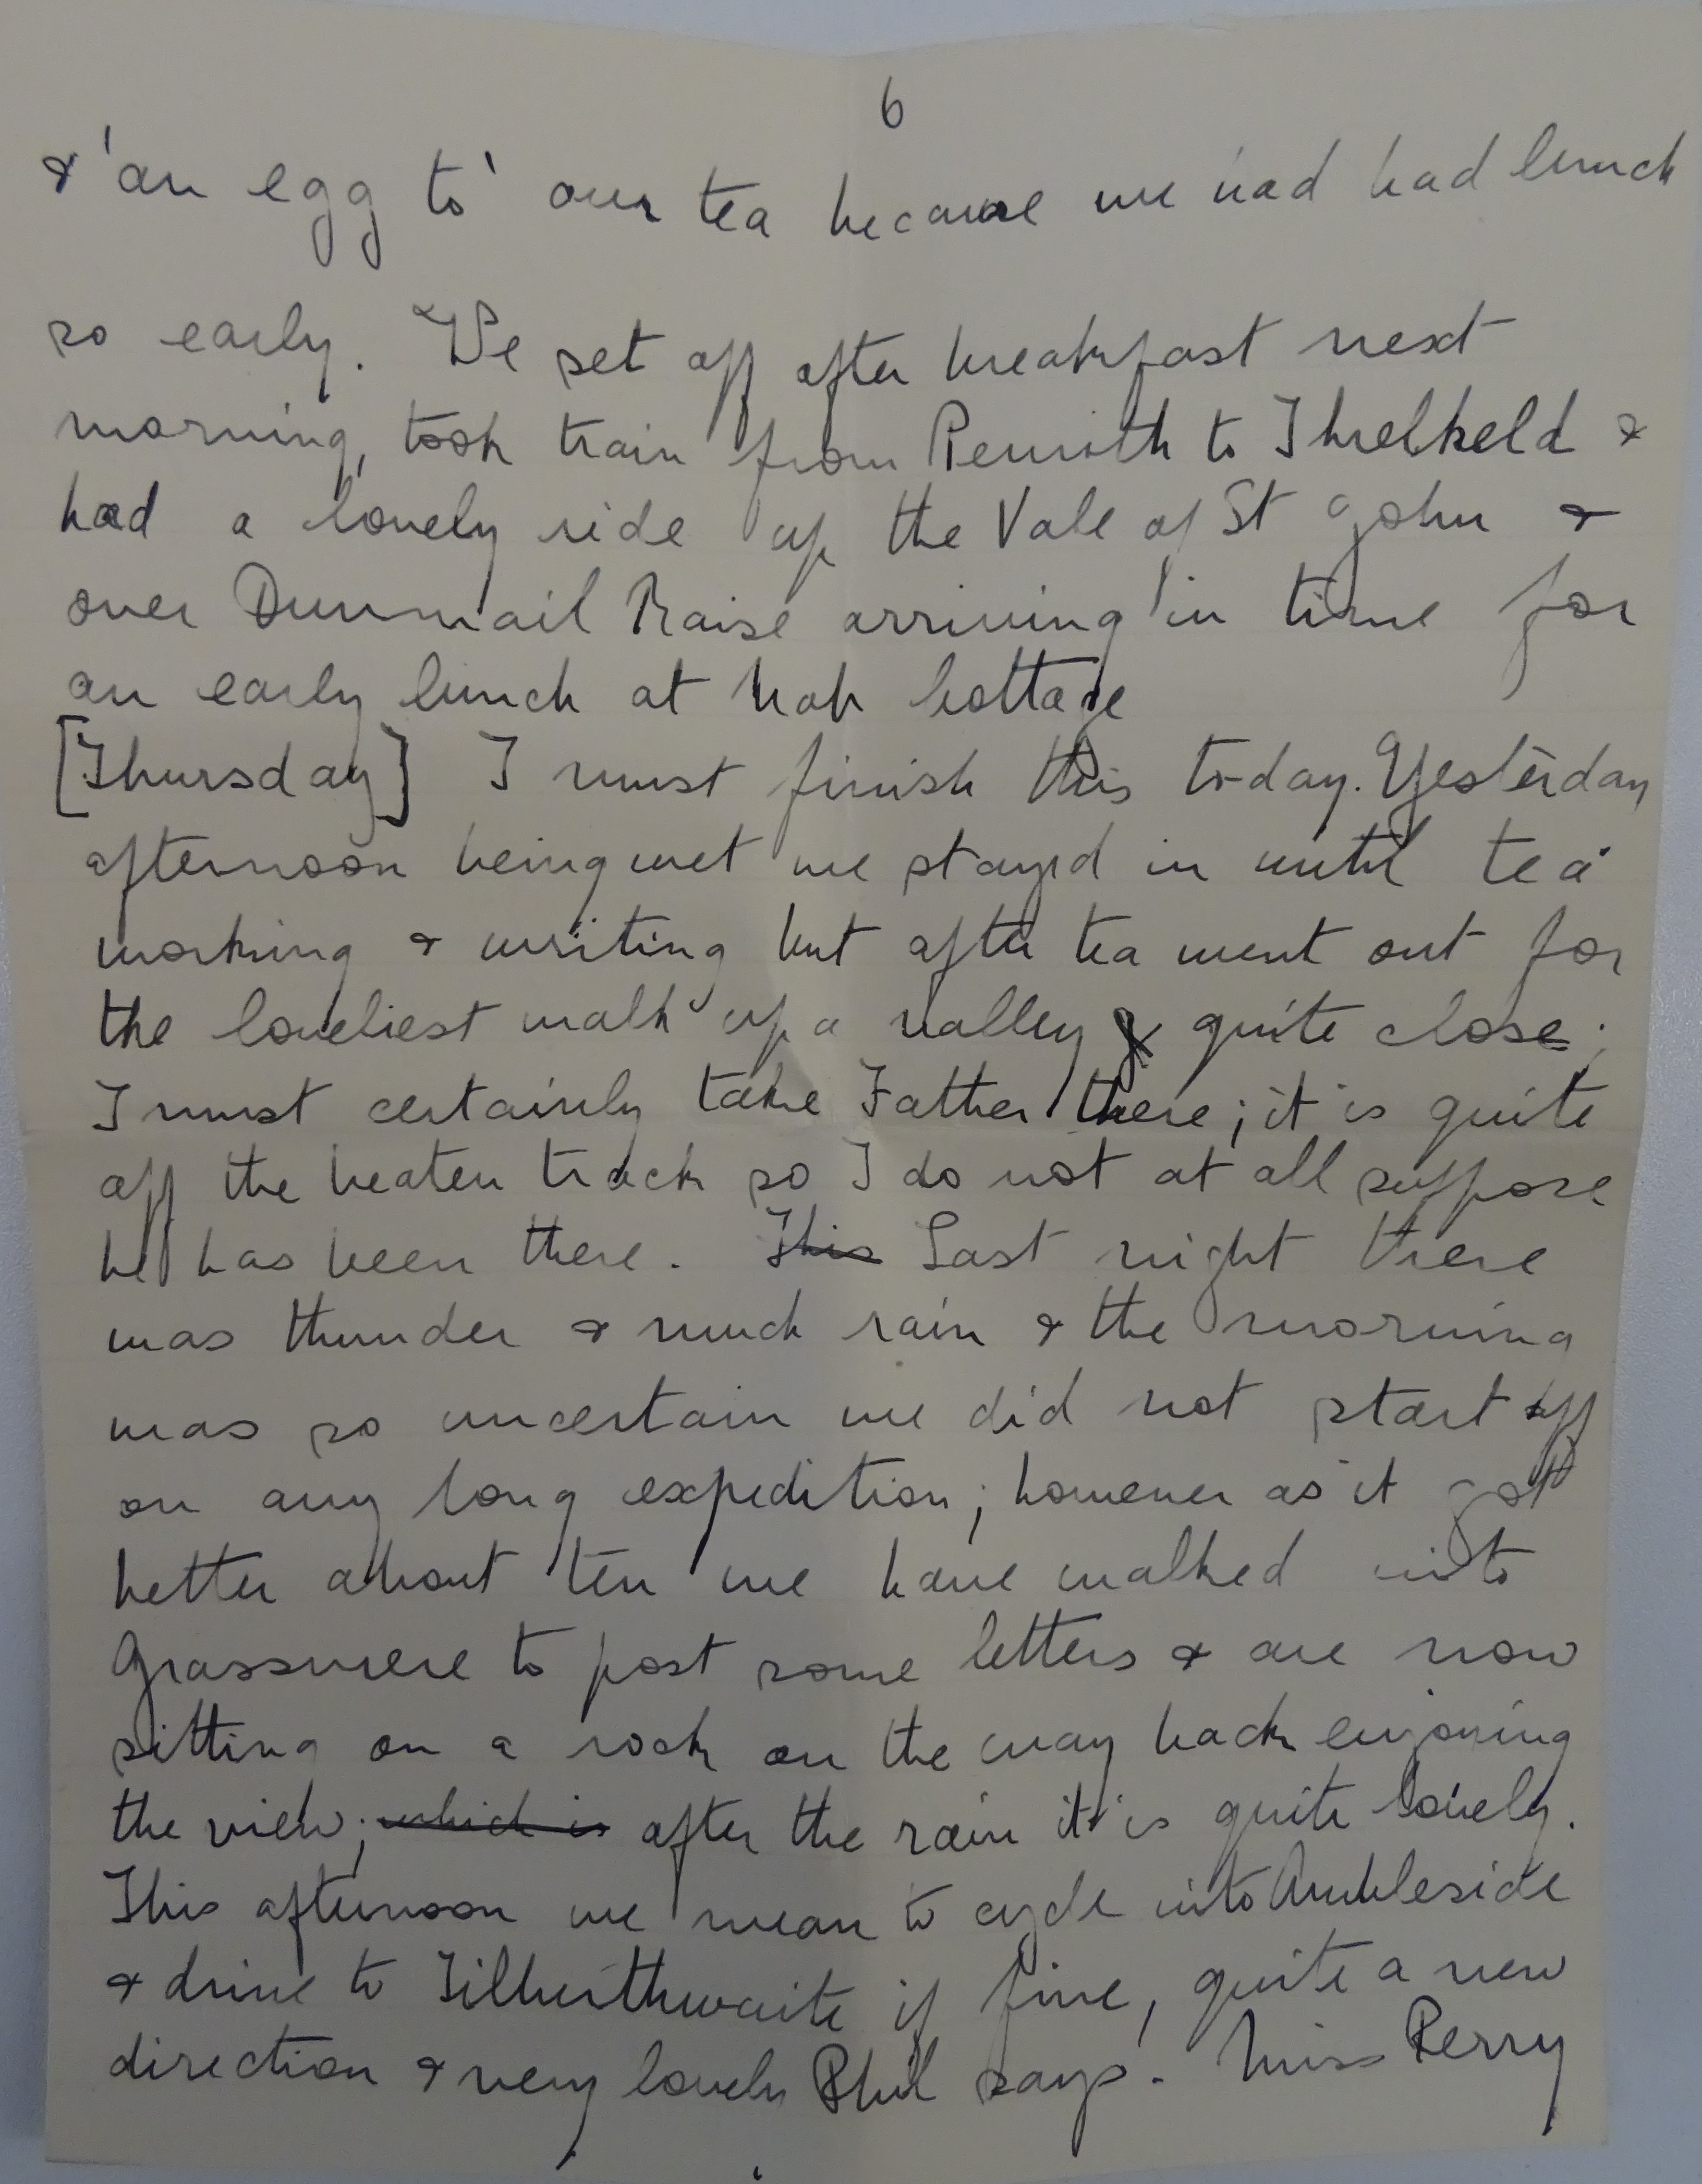 6
& 'an egg to' our tea because we had had lunch
so early. We set off after breakfast next
morning, took train from Penrith to Threlkeld &
had a lovely ride up the Vale of St John &
over Dunmail Raise arriving in time for
an early lunch at Nab Cottage
[Thursday] I must finish this to-day. Yesterday
afternoon being wet we stayed in until tea
working & writing but after tea went out for
the loveliest walk up a valley quite close;
I must certainly take Father there; it is quite
off the beaten track so I do not at all suppose
he has been there. This Last night there
was thunder & much rain & the morning
was so uncertain we did not start off
on any long expedition; however as it got
better about ten we have walked into
Grassmere to post some letters & are now
sitting on a rock on the way back enjoying
the view; which is after the rain it is quite lovely.
This afternoon we mean to cycle into Ambleside
& drive to Tilberthwaite if fine, quite a new
direction & very lovely Phil says. Miss Perry